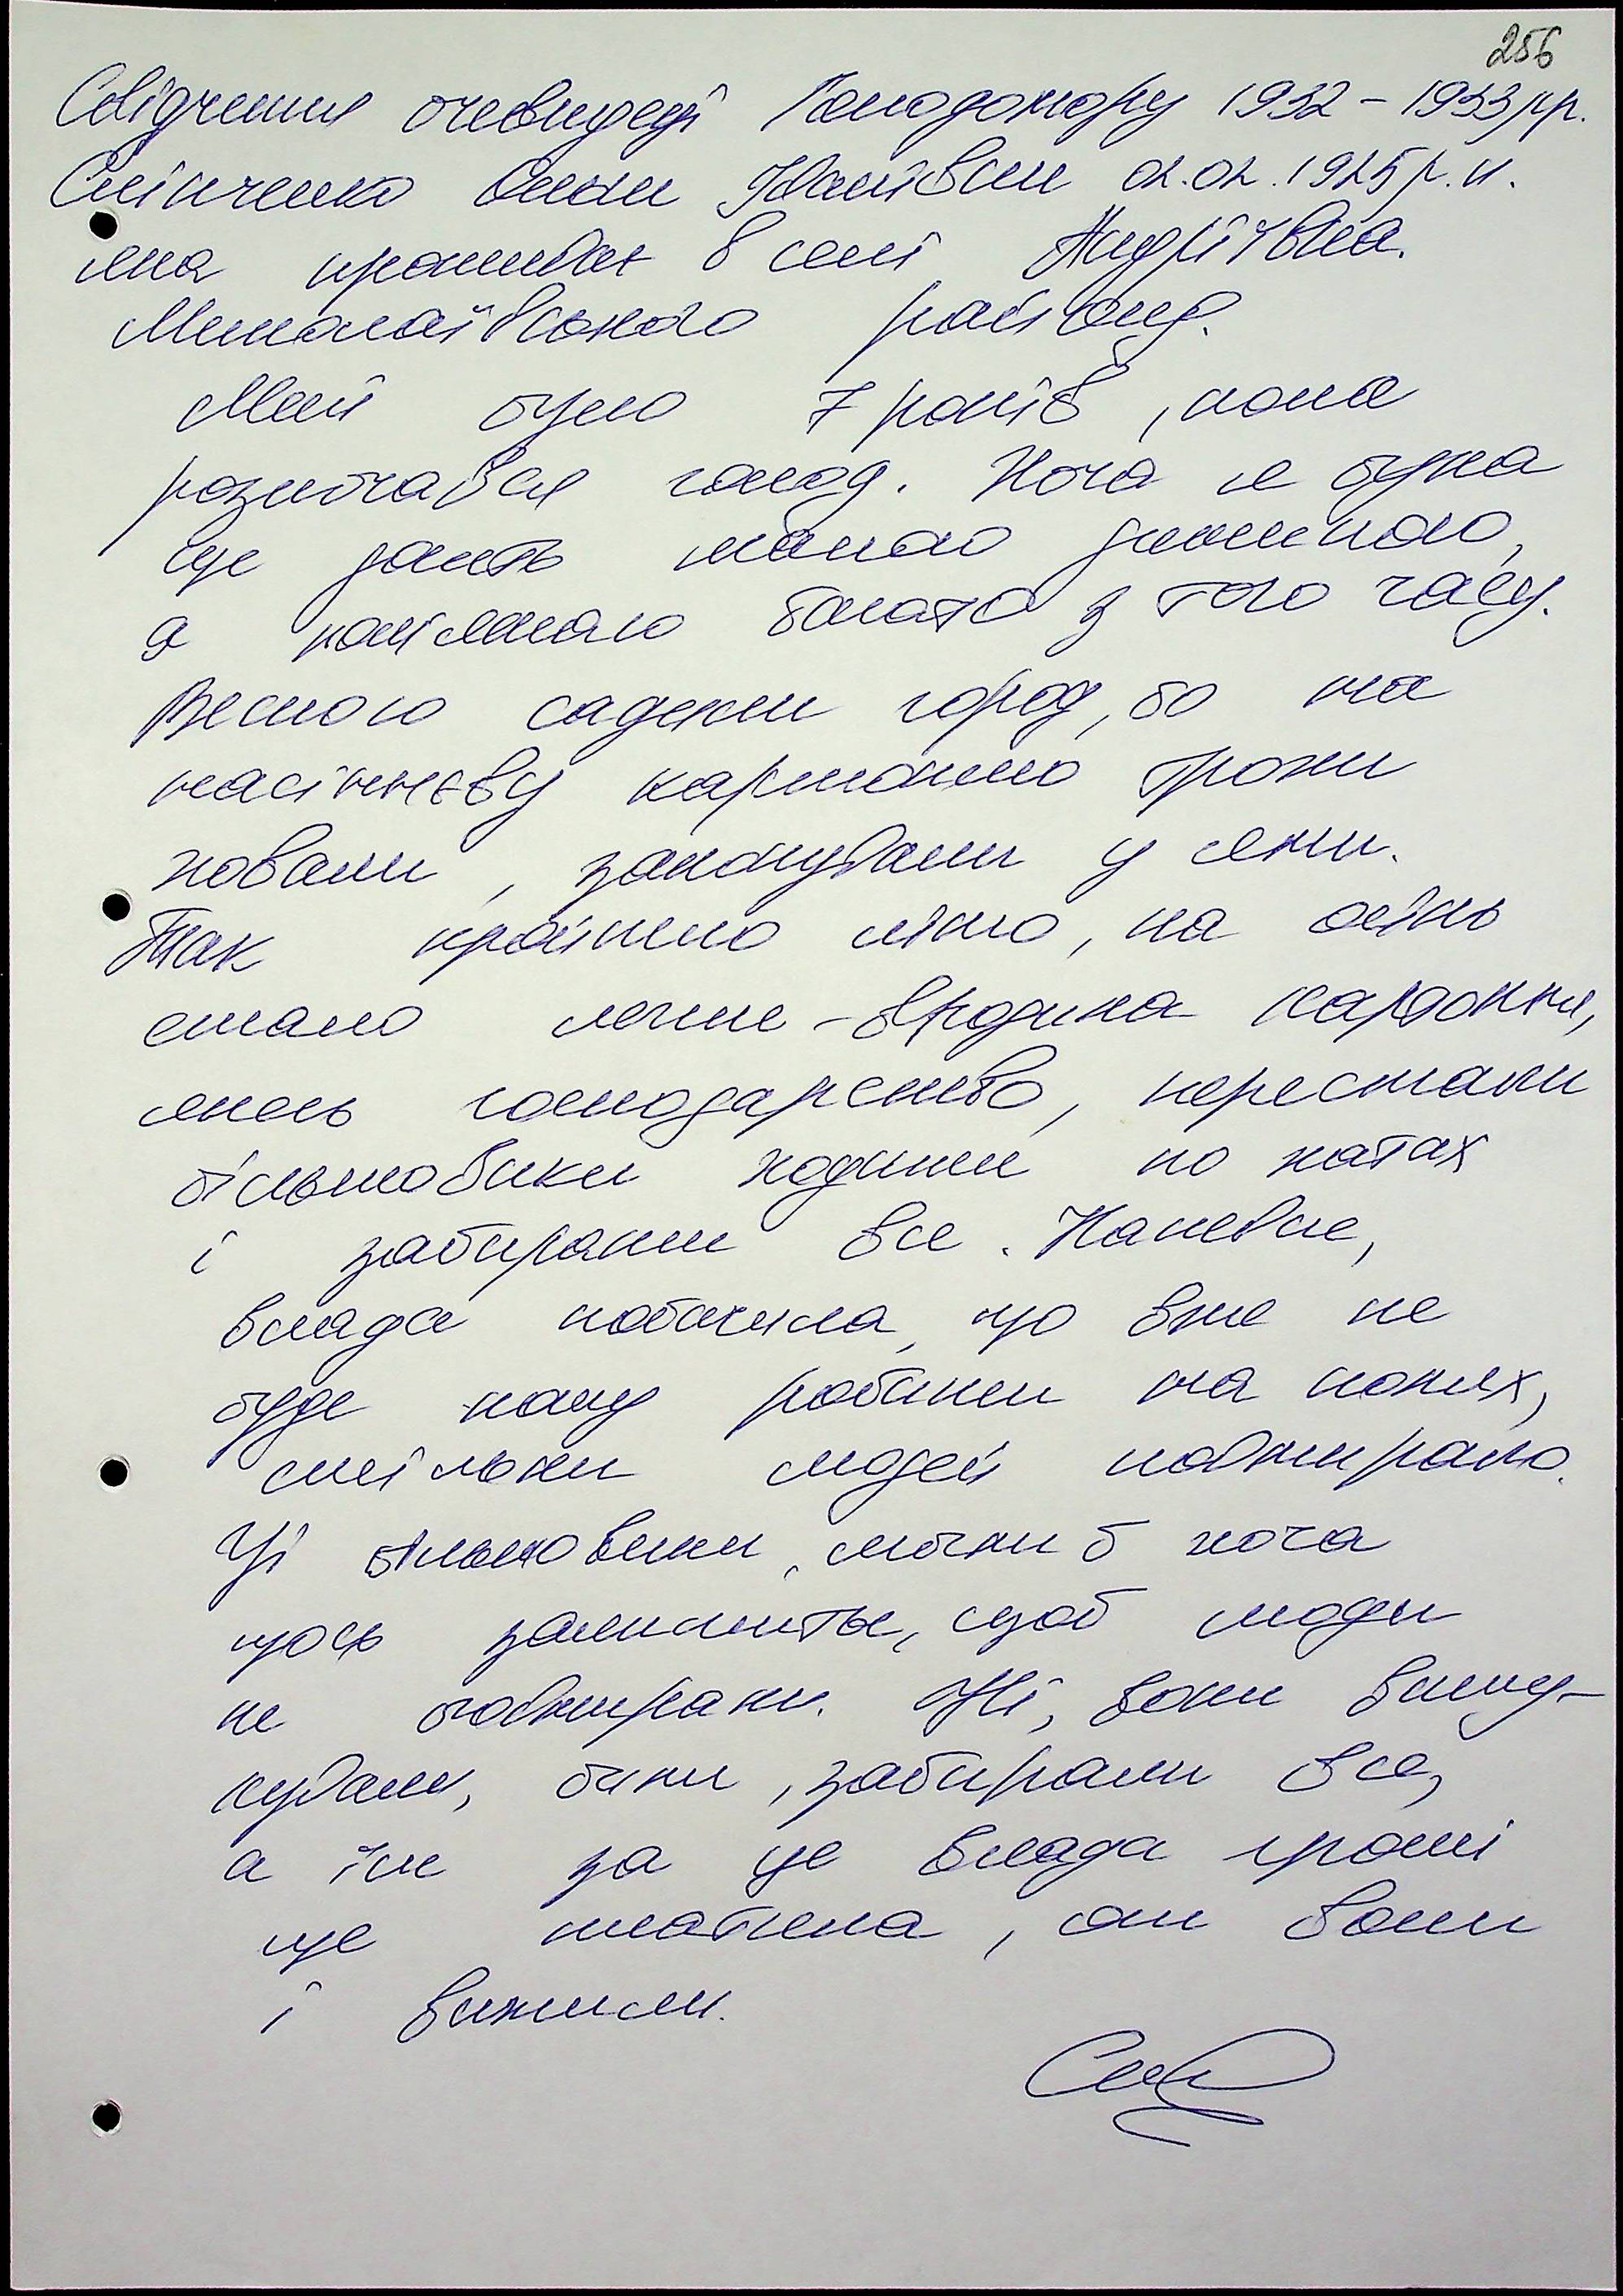 256
Свідчення очевидця Голодомору 1932 – 1933 рр.
Сліпченко Ольги Іванівни 02.02.1925 р.н.
яка проживає в селі Андріївка.
Миколаївського району.
Мені було 7 років, коли
розпочався голод. Хоча я була
ще доить малою дитиною,
а пам'ятаю багато з того часу.
Весною садили город, бо на
насіннєву картоплю трохи
ховали, закопували у ями.
Так пройшло літо, на осінь
стало легше – вродила картопля,
якесь господарство, перестали
більшовики ходити по хатах
і забирати все. Напевне,
влада побачила, що вже не
буде кому робити на полях,
скільки людей повмирало.
Ці більшовики, могли б хоча
щось залишити, щоб люди
не повмирали. Ні, вони вишу-
кували, били, забирали все,
а їм за це влада гроші
ще платила, от вони
і вижили.